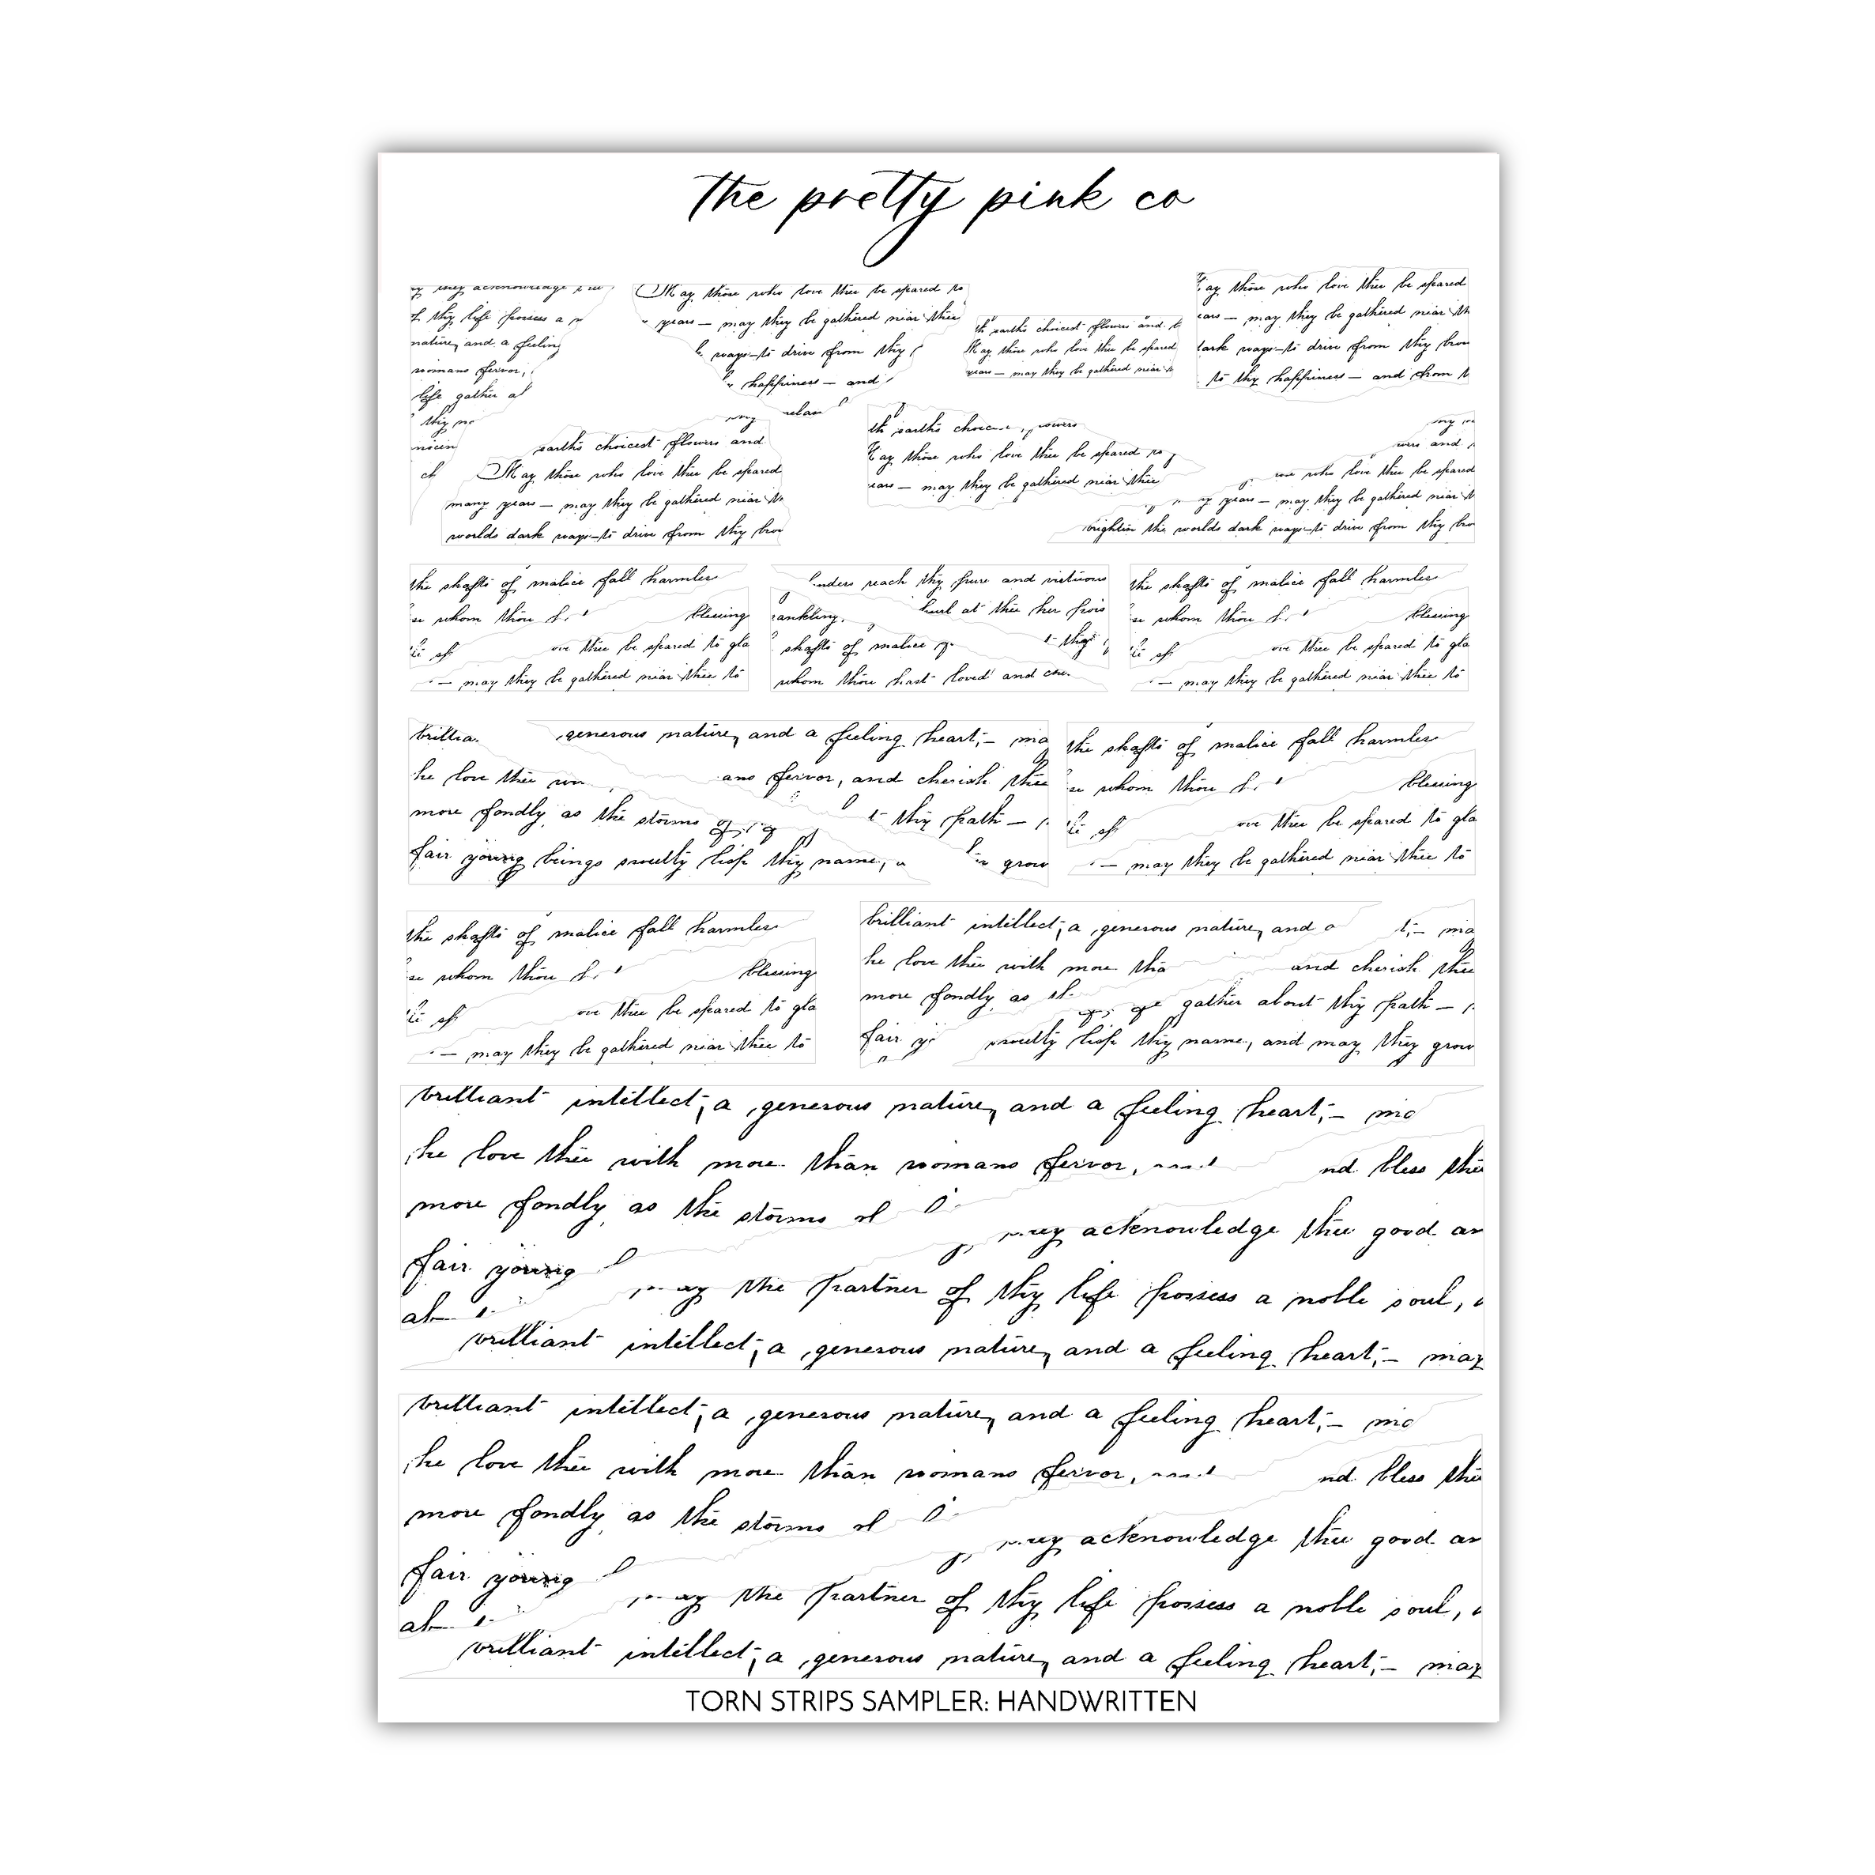 the pretty pink co
they acknowledge
thy life possess a
nature, and a feeling
womans fervor,
life gather
thy
May those who love thee be spared to
years — may they be gathered near thee
ways to drive from thy
happiness — and
earths choicest flowers and
May those who love thee be spared
years — may they be gathered near
ay those who love thee be spared
ears — may they be gathered near th
dark ways to drive from thy brow
to thy happiness — and from
earths choicest flowers and
May those who love thee be spared
many years — may they be gathered near th
worlds dark ways to drive from thy brow
th earths
ay those who love thee be spared to
ears — may they be gathered near thee
and
who love thee be spared
years — may they be gathered near th
brighten the worlds dark ways to drive from thy bro
the shafts of malice fall harmles
whom thou blessing
thee be spared to gla
— may they be gathered near thee to
reach thy pure and virtuous
rankling. hurl at thee her
shafts of malice thy
whom thou hast loved and
the shafts of malice fall harmles
whom thou blessing
thee be spared to gla
— may they be gathered near thee to
brillia generous nature, and a feeling heart;— ma
he love thee fervor, and cherish thee
more fondly as the storms thy path —
fair young beings sweetly lisp thy name, grow
the shafts of malice fall harmles
whom thou blessing
thee be spared to gla
— may they be gathered near thee to
the shafts of malice fall harmles
whom thou blessing
thee be spared to gla
— may they be gathered near thee to
brilliant intellect, a generous nature, and a ma
he love thee with more tha and cherish thee
more fondly as gather about thy path —
fair sweetly lisp thy name, and may they grow
brilliant intellect, a generous nature, and a feeling heart;—
he love thee with more than womans fervor, nd bless thee
more fondly as the storms
acknowledge thee good an
fair young
may the partner of thy life possess a noble soul,
brilliant intellect, a generous nature, and a feeling heart;— may
brilliant intellect, a generous nature, and a feeling heart;—
he love thee with more than womans fervor, nd bless thee
more fondly as the storms
acknowledge thee good an
fair young
may the partner of thy life possess a noble soul,
brilliant intellect, a generous nature, and a feeling heart;— may
TORN STRIPS SAMPLER: HANDWRITTEN